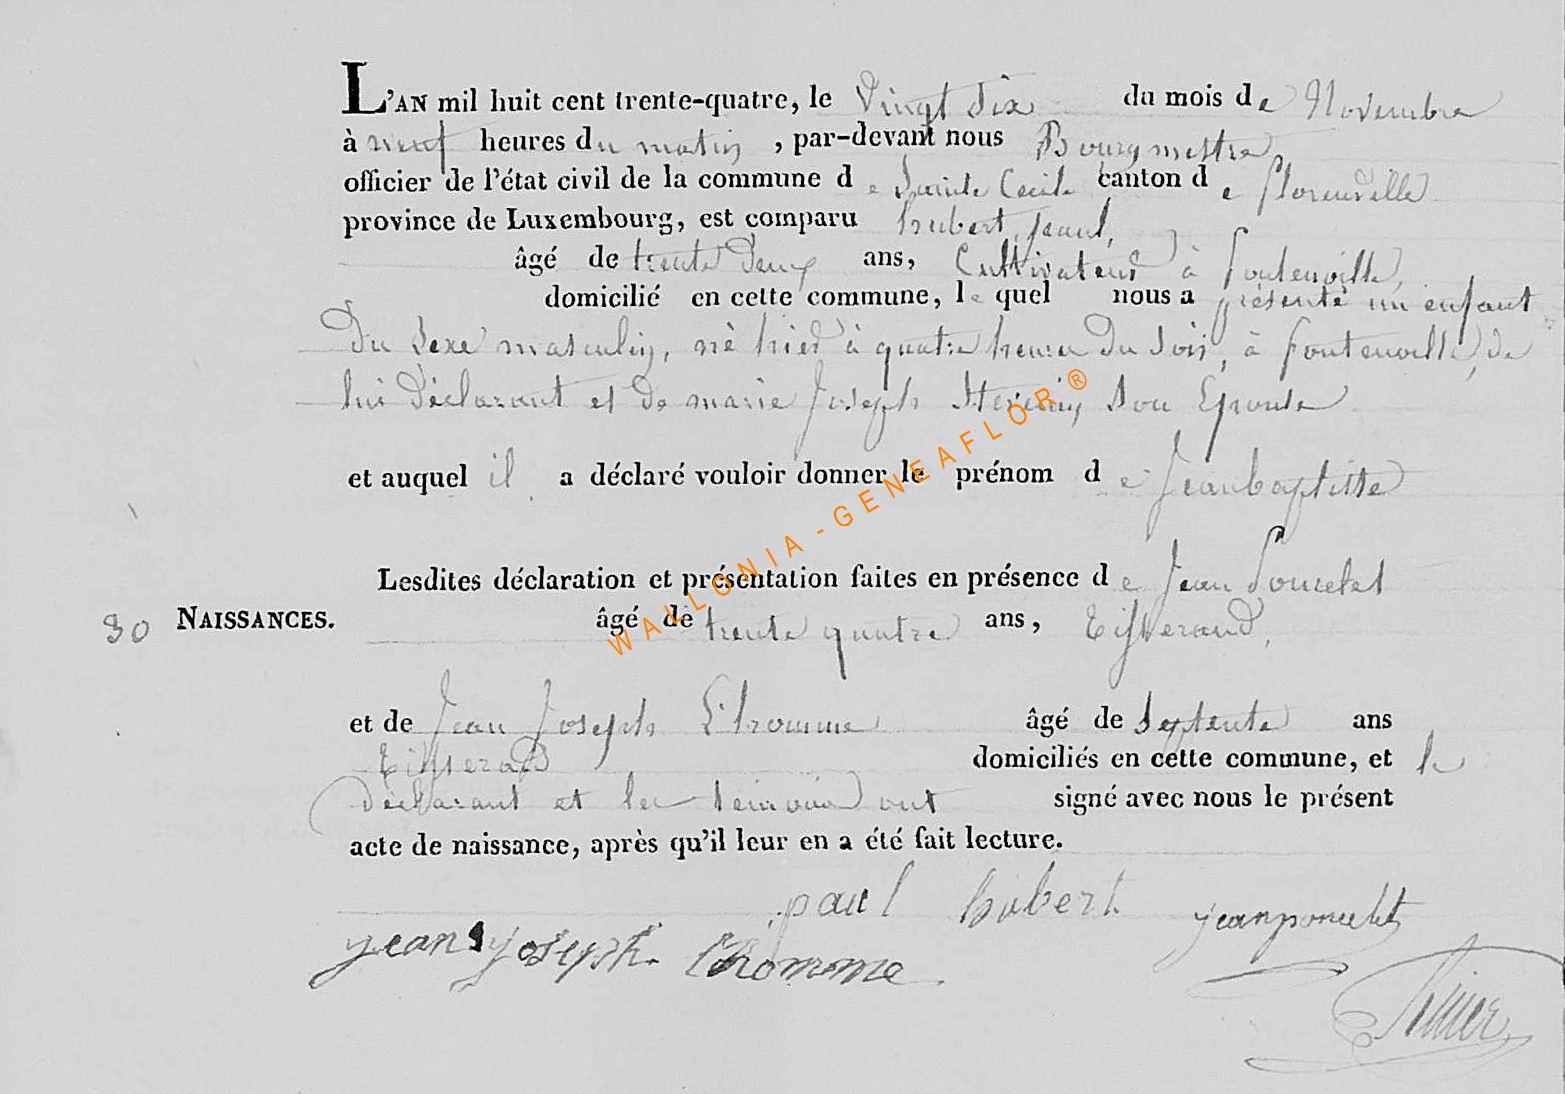 L'AN mil huit cent trente-quatre, le Vingt Six du mois de Novembre
à neuf heures du matin, par-devant nous Bourgmestre
officier de l'état civil de la commune de Sainte Cecile canton de florenville
province de Luxembourg, est comparu hubert paul,
âgé de trente Deux ans, Cultivateur à fontenoille,
domicilié en cette commune, le quel nous a présenté un enfant
Du Sexe masculin, né hier à quatre heures Du Soir, à fontenoille, de
lui Déclarant et De marie Joseph Son Epouse
et auquel il a déclaré vouloir donner le prénom de Jeanbaptiste
Lesdites déclaration et présentation faites en présence de Jean Poncelet
30 NAISSANCES. âgé de trente quatre ans, Tisserand,
et de Jean Joseph L'homme âgé de Septente ans
Tisserand domiciliés en cette commune, et le
Déclarant et les témoins ont signé avec nous le présent
acte de naissance, après qu'il leur en a été fait lecture.
paul hubert jean poncelet
jean joseph Lhomme
WALLONIA-GENEAFLOR®